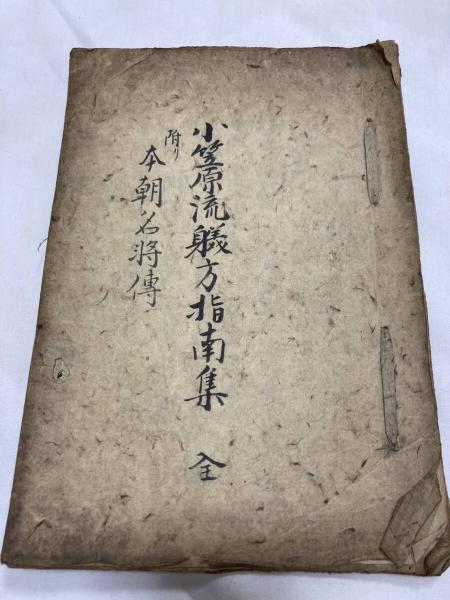 小笠原流躾方指南集 全
附り
本朝名将傳